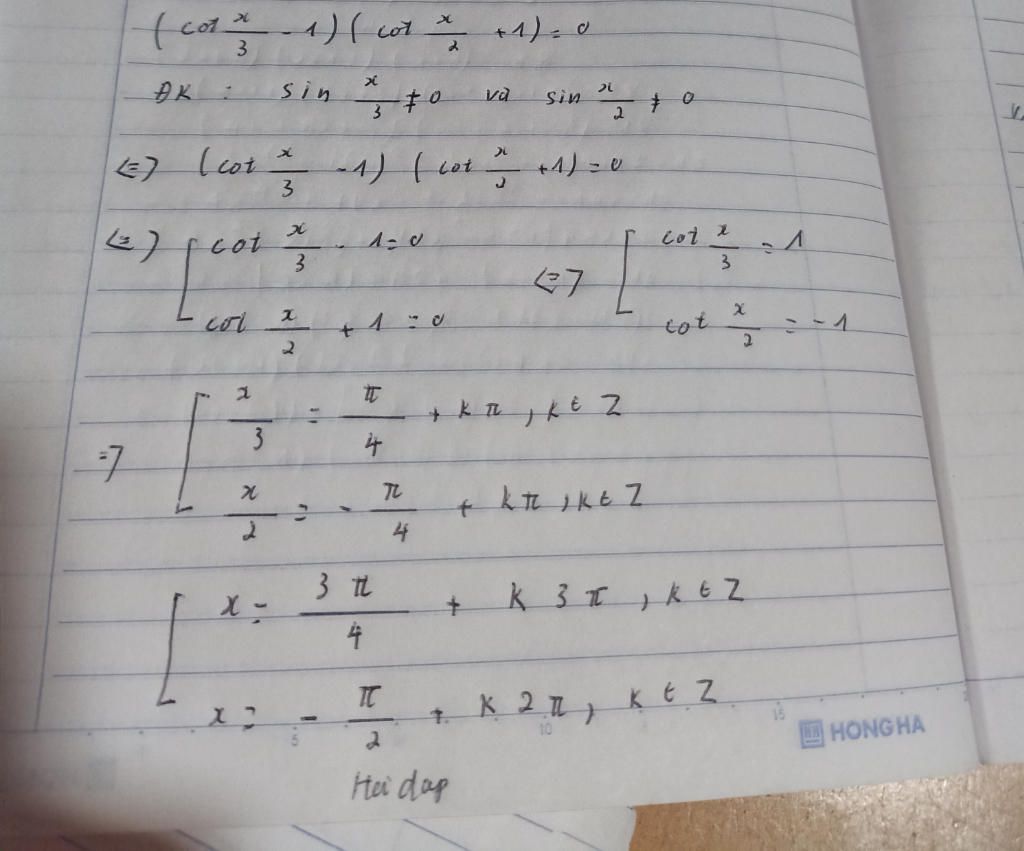 (cot x/3 - 1)(cot x/2 + 1) = 0
ĐK : sin x/3 ≠ 0 và sin x/2 ≠ 0
<=> (cot x/3 - 1) (cot x/2 + 1) = 0
<=> [ cot x/3 - 1 = 0 <=> [ cot x/3 = 1
cot x/2 + 1 = 0 cot x/2 = -1
=> [ x/3 = π/4 + kπ, k ∈ Z
x/2 = - π/4 + kπ, k ∈ Z
[ x = 3π/4 + k3π, k ∈ Z
x = - π/2 + k2π, k ∈ Z
5 10 15
HONG HA
Hoi dap